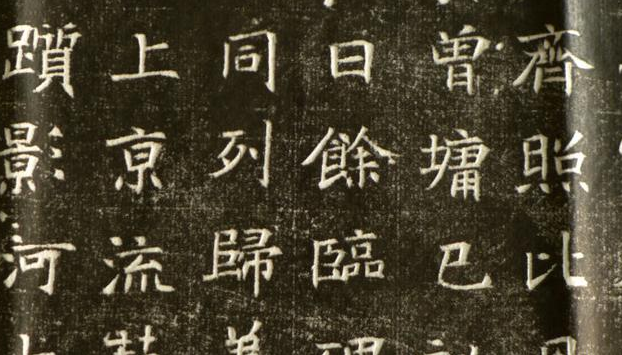 齊照比
曽墉已
日餘臨
同列歸
上京流
躓影河